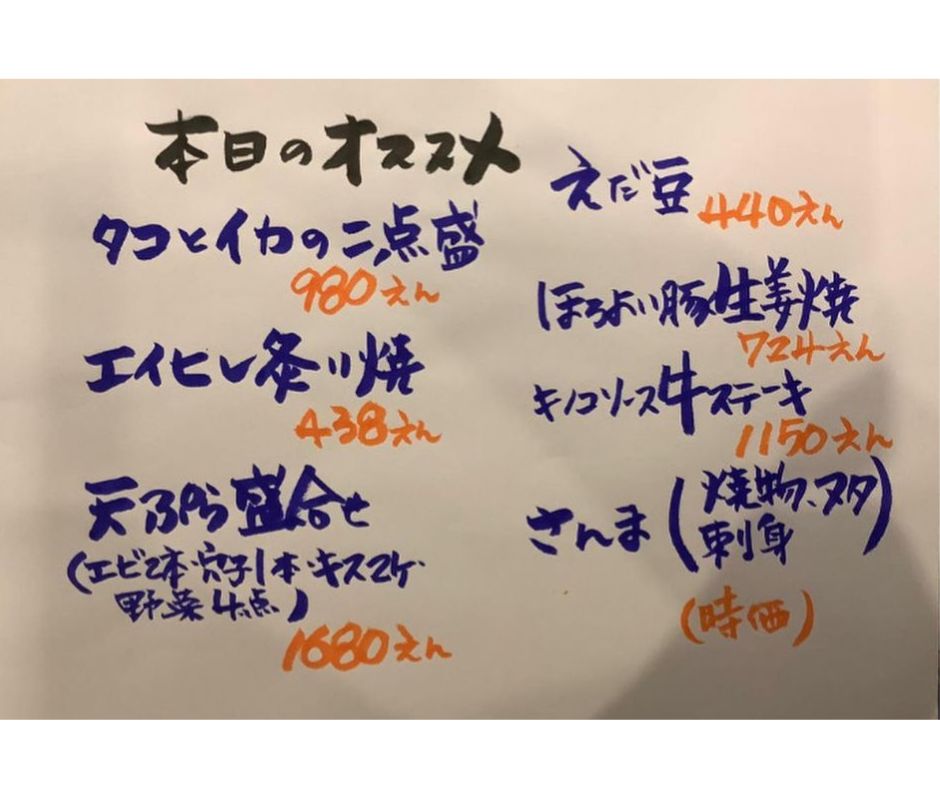 本日のオススメ
タコとイカの二点盛
980えん
エイヒレ炙り焼
438えん
天ぷら盛合せ
(エビ2本・穴子1本・キス2ケ・
野菜4点)
1680えん
えだ豆
440えん
ほろよい豚生姜焼
724えん
キノコソース牛ステーキ
1150えん
さんま(焼物、ヌタ
刺身)
(時価)